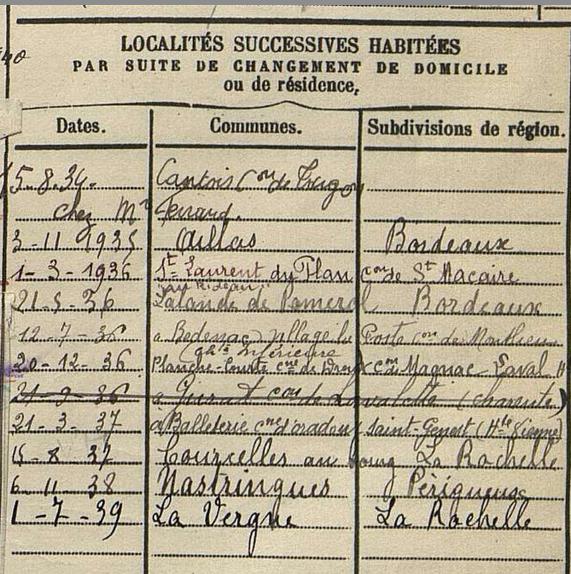 LOCALITÉS SUCCESSIVES HABITÉES
PAR SUITE DE CHANGEMENT DE DOMICILE
ou de résidence,
Dates. Communes. Subdivisions de région.
5-8.34. Cantois Con de Targon
chez Mr
3-11 1935 Aillas Bordeaux
1-3-1936 St Laurent du Plan con de St Macaire
21-5-36 Lalande de Pomerol Bordeaux
12-7-36 a Bedenac village la Poste con de
20-12-36 con de Magnac-Laval
con de Lavalette (charente)
21-3-37 à Balleterie cne d'oradour Saint-Genest (Hte Vienne)
15-8-37 Courcelles au bourg La Rochelle
6-11-38 Nastringues Périgueux
1-7-39 La Vergne La Rochelle